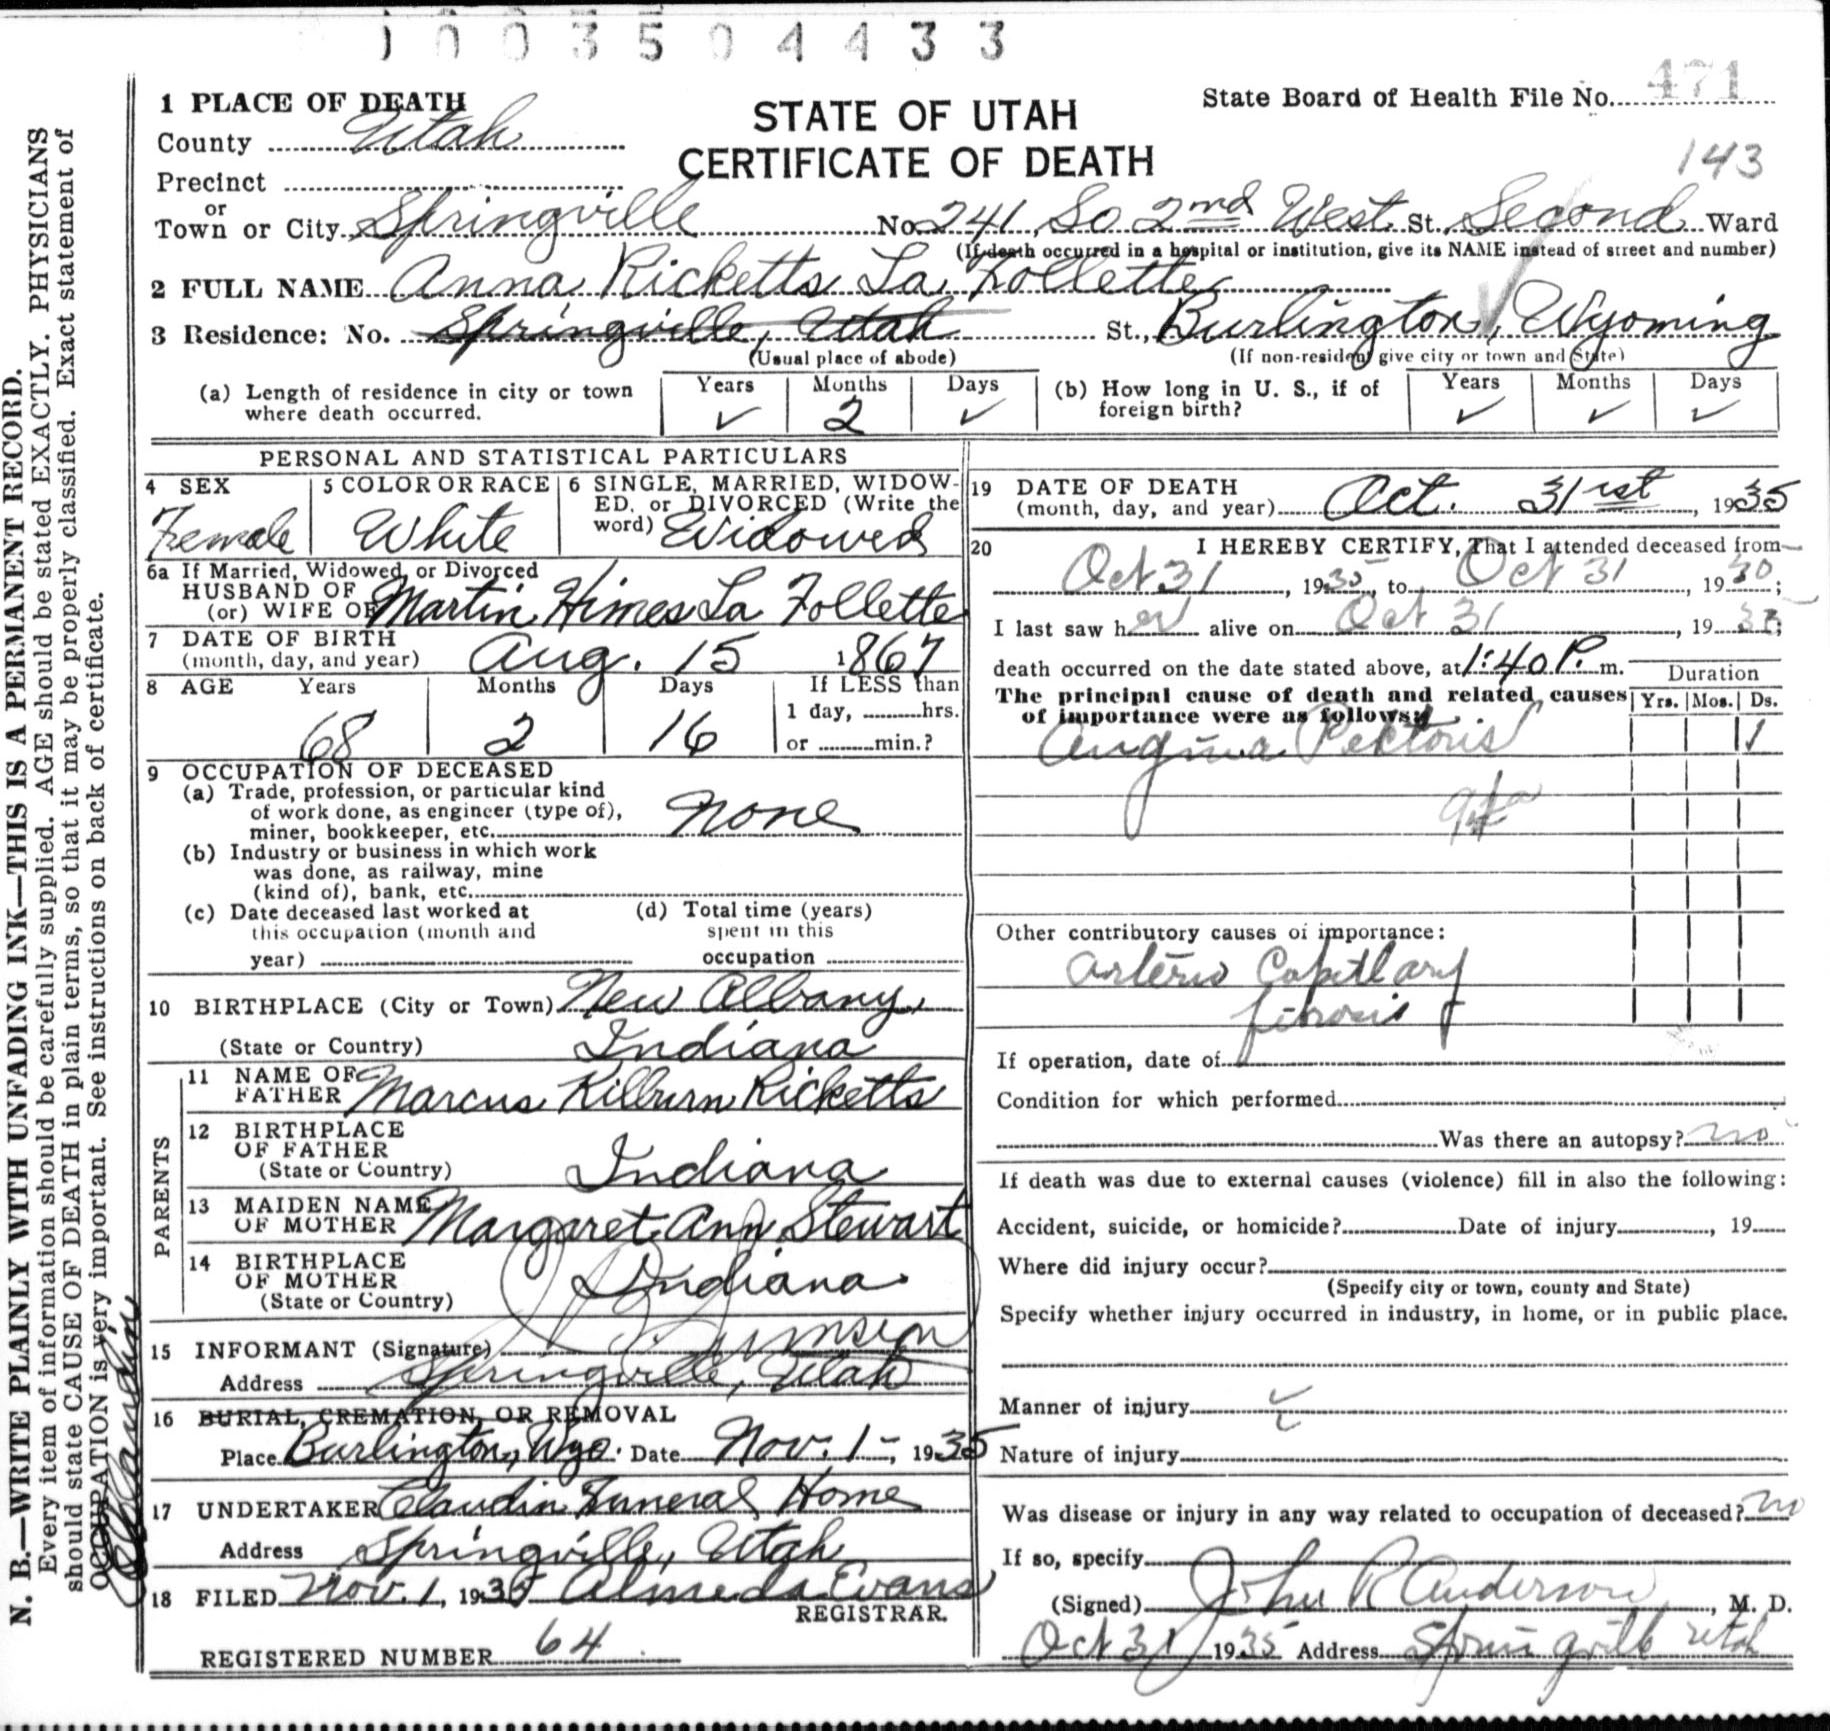 0 0 0 3 5 0 4 4 3 3
471
1 PLACE OF DEATH
STATE OF UTAH
CERTIFICATE OF DEATH
State Board of Health File No.
143
County Utah
Precinct
or
Town or City Springville No. 241, So 2nd West St. Second Ward
(If death occurred in a hospital or institution, give its NAME instead of street and number)
2 FULL NAME Anna Ricketts La Follette
3 Residence: No. Springville, Utah St., Burlington, Wyoming
(Usual place of abode) (If non-resident give city or town and State)
(a) Length of residence in city or town where death occurred. Years ✓ Months 2 Days ✓
(b) How long in U. S., if of foreign birth? Years ✓ Months ✓ Days ✓
PERSONAL AND STATISTICAL PARTICULARS
4 SEX Female
5 COLOR OR RACE White
6 SINGLE, MARRIED, WIDOW-
ED, or DIVORCED (Write the
word) Widowed
6a If Married, Widowed, or Divorced
HUSBAND OF
(or) WIFE OF Martin Himes La Follette
7 DATE OF BIRTH
(month, day, and year) Aug. 15 1867
8 AGE Years 68 Months 2 Days 16 If LESS than
1 day, ........hrs.
or ........min.?
9 OCCUPATION OF DECEASED
(a) Trade, profession, or particular kind
of work done, as engineer (type of),
miner, bookkeeper, etc. None
(b) Industry or business in which work
was done, as railway, mine
(kind of), bank, etc.
(c) Date deceased last worked at
this occupation (month and
year)
(d) Total time (years)
spent in this
occupation
10 BIRTHPLACE (City or Town) New Albany,
(State or Country) Indiana
PARENTS
11 NAME OF
FATHER Marcus Kilburn Ricketts
12 BIRTHPLACE
OF FATHER
(State or Country) Indiana
13 MAIDEN NAME
OF MOTHER Margaret Ann Stewart
14 BIRTHPLACE
OF MOTHER
(State or Country) Indiana
15 INFORMANT (Signature)
Address Springville, Utah
16 BURIAL, CREMATION, OR REMOVAL
Place Burlington, Wyo. Date Nov. 1-, 1935
17 UNDERTAKER Claudin Funeral Home
Address Springville, Utah
18 FILED Nov. 1, 1935 Almeda Evans
REGISTRAR.
REGISTERED NUMBER 64
19 DATE OF DEATH
(month, day, and year) Oct. 31rst, 1935
20 I HEREBY CERTIFY, That I attended deceased from
Oct 31, 1935, to Oct 31, 19
I last saw her alive on Oct 31, 19
death occurred on the date stated above, at 1:40 P. m.
The principal cause of death and related causes
of importance were as follows:
Duration
Yrs. Mos. Ds.
Angina Pectoris 1
Other contributory causes of importance:
Arterio Capillary
fibrosis
If operation, date of
Condition for which performed
Was there an autopsy? no
If death was due to external causes (violence) fill in also the following:
Accident, suicide, or homicide? Date of injury , 19
Where did injury occur?
(Specify city or town, county and State)
Specify whether injury occurred in industry, in home, or in public place.
Manner of injury
Nature of injury
Was disease or injury in any way related to occupation of deceased? no
If so, specify
(Signed) John R Anderson, M. D.
Oct 31 1935 Address Springville Utah
N. B.—WRITE PLAINLY WITH UNFADING INK—THIS IS A PERMANENT RECORD.
Every item of information should be carefully supplied. AGE should be stated EXACTLY. PHYSICIANS
should state CAUSE OF DEATH in plain terms, so that it may be properly classified. Exact statement of
OCCUPATION is very important. See instructions on back of certificate.